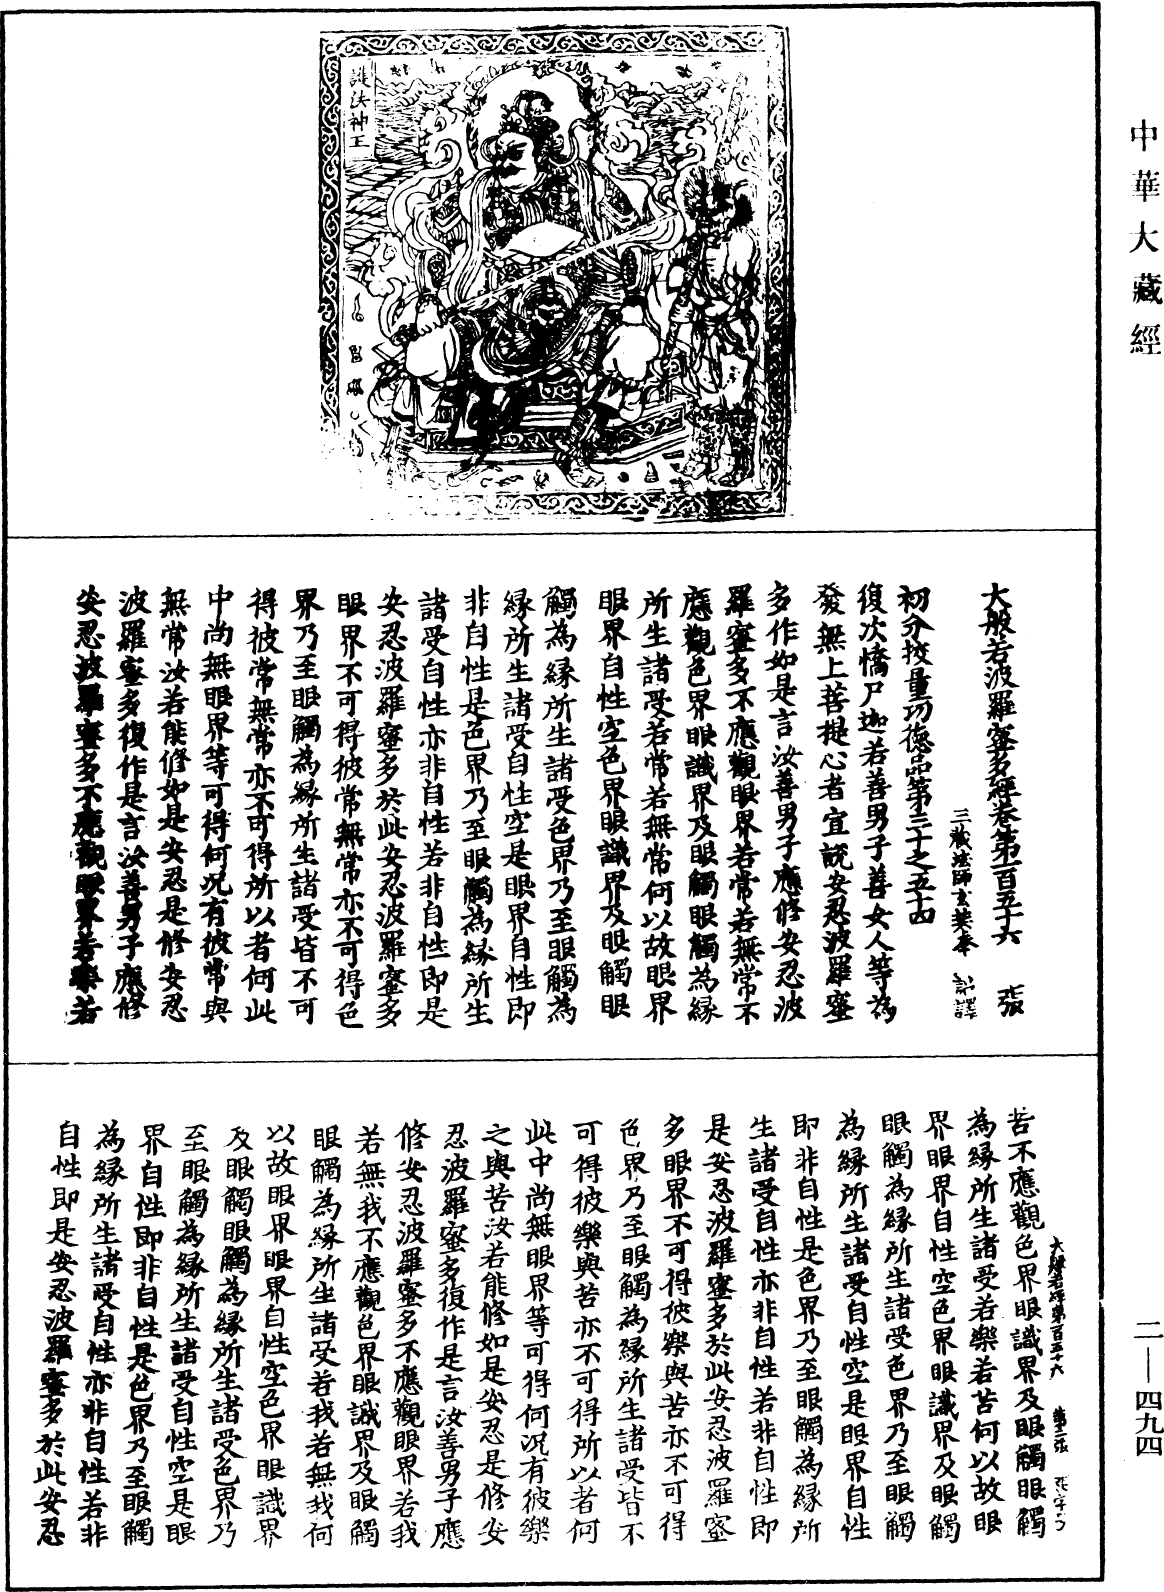 中華大藏經
護法神王
大般若波羅蜜多經卷第一百五十六 張
三藏法師玄奘奉 詔譯
初分挍量功德品第三十之五十四
復次憍尸迦若善男子善女人等為
發無上菩提心者宣說安忍波羅蜜
多作如是言汝善男子應修安忍波
羅蜜多不應觀眼界若常若無常不
應觀色界眼識界及眼觸眼觸為緣
所生諸受若常若無常何以故眼界
眼界自性空色界眼識界及眼觸眼
觸為緣所生諸受色界乃至眼觸為
緣所生諸受自性空是眼界自性即
非自性是色界乃至眼觸為緣所生
諸受自性亦非自性若非自性即是
安忍波羅蜜多於此安忍波羅蜜多
眼界不可得彼常無常亦不可得色
界乃至眼觸為緣所生諸受皆不可
得彼常無常亦不可得所以者何此
中尚無眼界等可得何況有彼常與
無常汝若能修如是安忍是修安忍
波羅蜜多復作是言汝善男子應修
安忍波羅蜜多不應觀眼界若樂若
大般若經第一百五十六 第二張 張字号
苦不應觀色界眼識界及眼觸眼觸
為緣所生諸受若樂若苦何以故眼
界眼界自性空色界眼識界及眼觸
眼觸為緣所生諸受色界乃至眼觸
為緣所生諸受自性空是眼界自性
即非自性是色界乃至眼觸為緣所
生諸受自性亦非自性若非自性即
是安忍波羅蜜多於此安忍波羅蜜
多眼界不可得彼樂與苦亦不可得
色界乃至眼觸為緣所生諸受皆不
可得彼樂與苦亦不可得所以者何
此中尚無眼界等可得何況有彼樂
之與苦汝若能修如是安忍是修安
忍波羅蜜多復作是言汝善男子應
修安忍波羅蜜多不應觀眼界若我
若無我不應觀色界眼識界及眼觸
眼觸為緣所生諸受若我若無我何
以故眼界眼界自性空色界眼識界
及眼觸眼觸為緣所生諸受色界乃
至眼觸為緣所生諸受自性空是眼
界自性即非自性是色界乃至眼觸
為緣所生諸受自性亦非自性若非
自性即是安忍波羅蜜多於此安忍
二—四九四